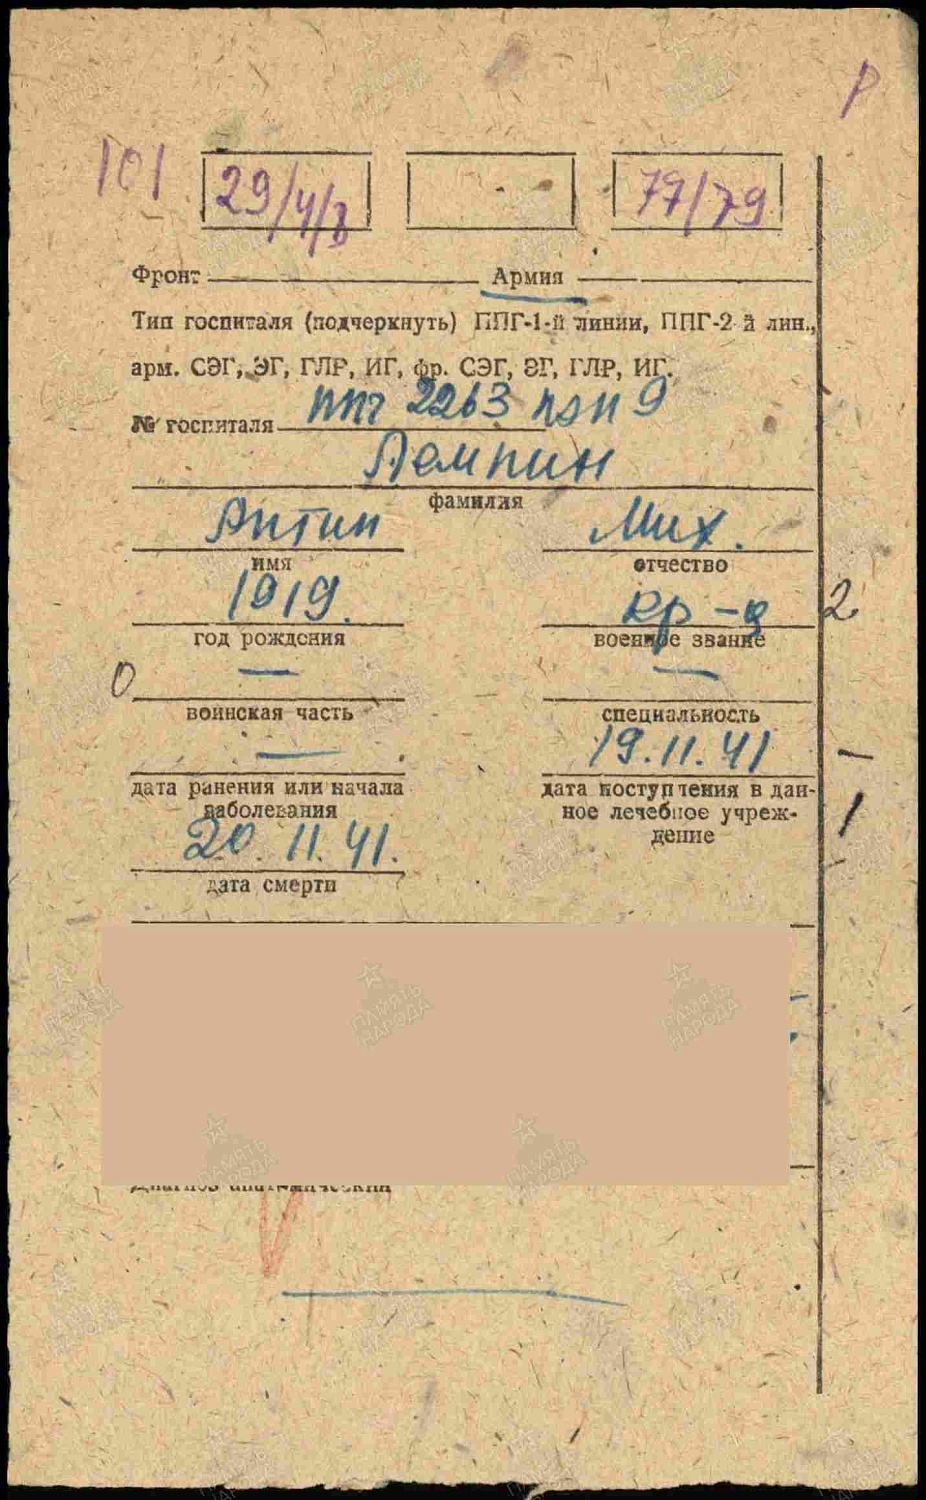 Р
101 29/4/8 77/79
Фронт Армия
Тип госпиталя (подчеркнуть) ППГ-1-й линии, ППГ-2 й лин.,
арм. СЭГ, ЭГ, ГЛР, ИГ, фр. СЭГ, ЭГ, ГЛР, ИГ.
№ госпиталя ппг 2263 пэп 9
Лемпин
фамилия
Антип Мих.
имя отчество
1919. кр-ц 2
год рождения военное звание
0 — —
воинская часть специальность
— 19.11.41 —
дата ранения или начала дата поступления в дан-
заболевания ное лечебное учреж- 1
дение
20.11.41.
дата смерти
Диагноз анатомический
ПАМЯТЬ НАРОДА